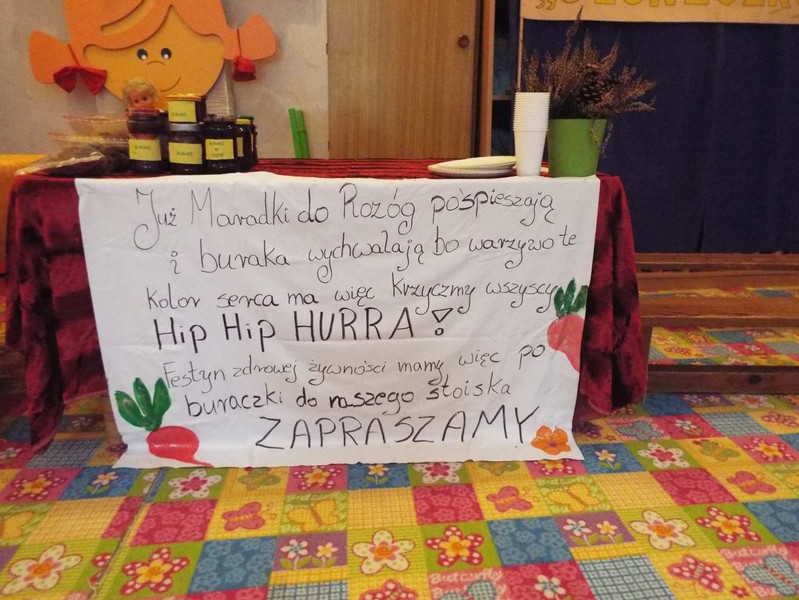 Już Maradki do Rozóg pośpieszają
i buraka wychwalają bo warzywo te
kolor serca ma więc krzyczmy wszyscy
Hip Hip HURRA!
Festyn zdrowej żywności mamy więc po
buraczki do naszego stoiska
ZAPRASZAMY